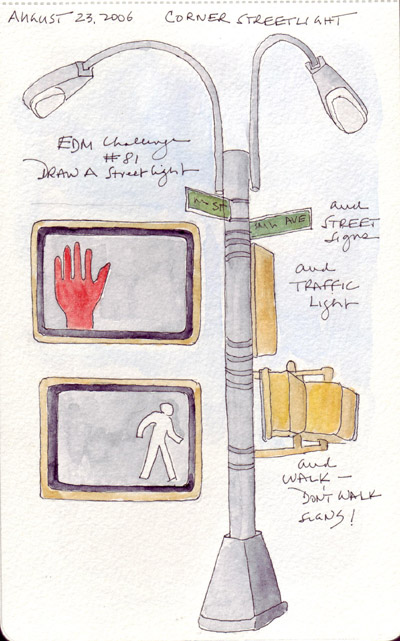 AUGUST 23, 2006 CORNER STREETLIGHT
EDM Challenge
#81
DRAW A Streetlight
ST
AVE
and
STREET
Signs
and
TRAFFIC
Light
and
WALK —
DON'T WALK
SIGNS!